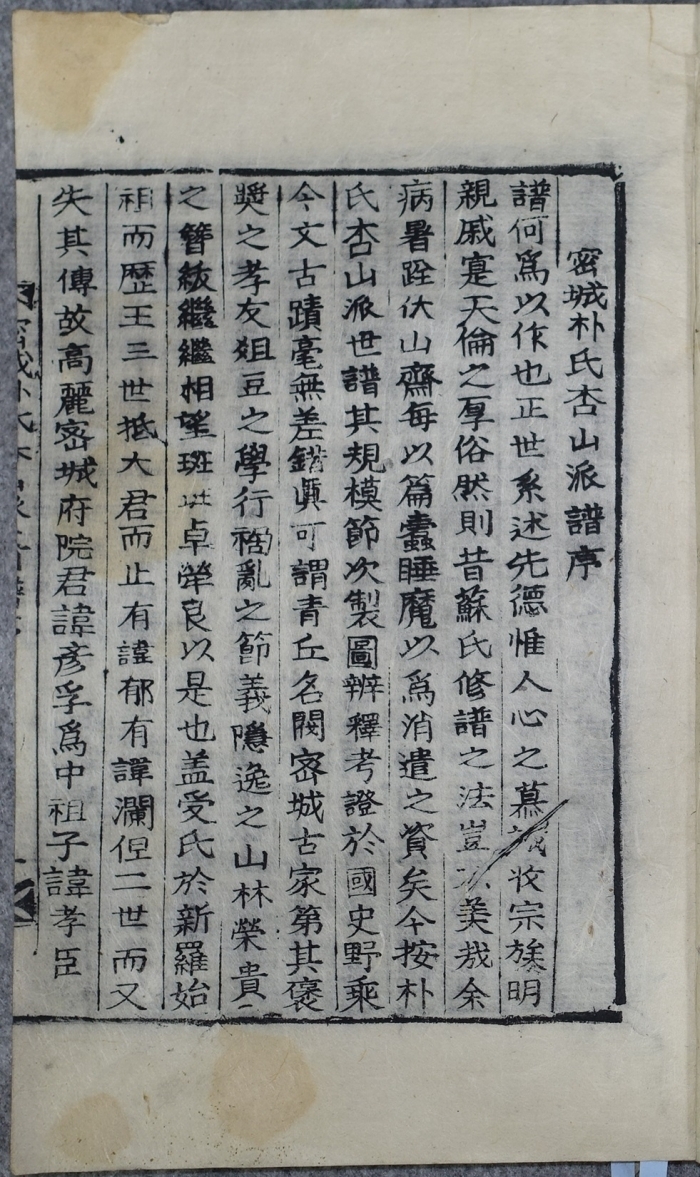 密城朴氏杏山派譜序
譜何爲以作也正世系述先德惟人心之慕收宗族明
親戚寔天倫之厚俗然則昔蘇氏修譜之法豈美哉余
病暑跧伏山齋每以篇蠹睡魔以爲消遣之資矣今按朴
氏杏山派世譜其規模節次製圖辨釋考證於國史野乘
今文古蹟毫無差錯眞可謂靑丘名閥密城古家第其褒
奬之孝友俎豆之學行禍亂之節義隱逸之山林榮貴
之簪紱繼繼相望班班卓犖良以是也盖受氏於新羅始
祖而歷王三世抵大君而止有諱郁有諱瀾但二世而又
失其傳故高麗密城府院君諱彥孚爲中祖子諱孝臣